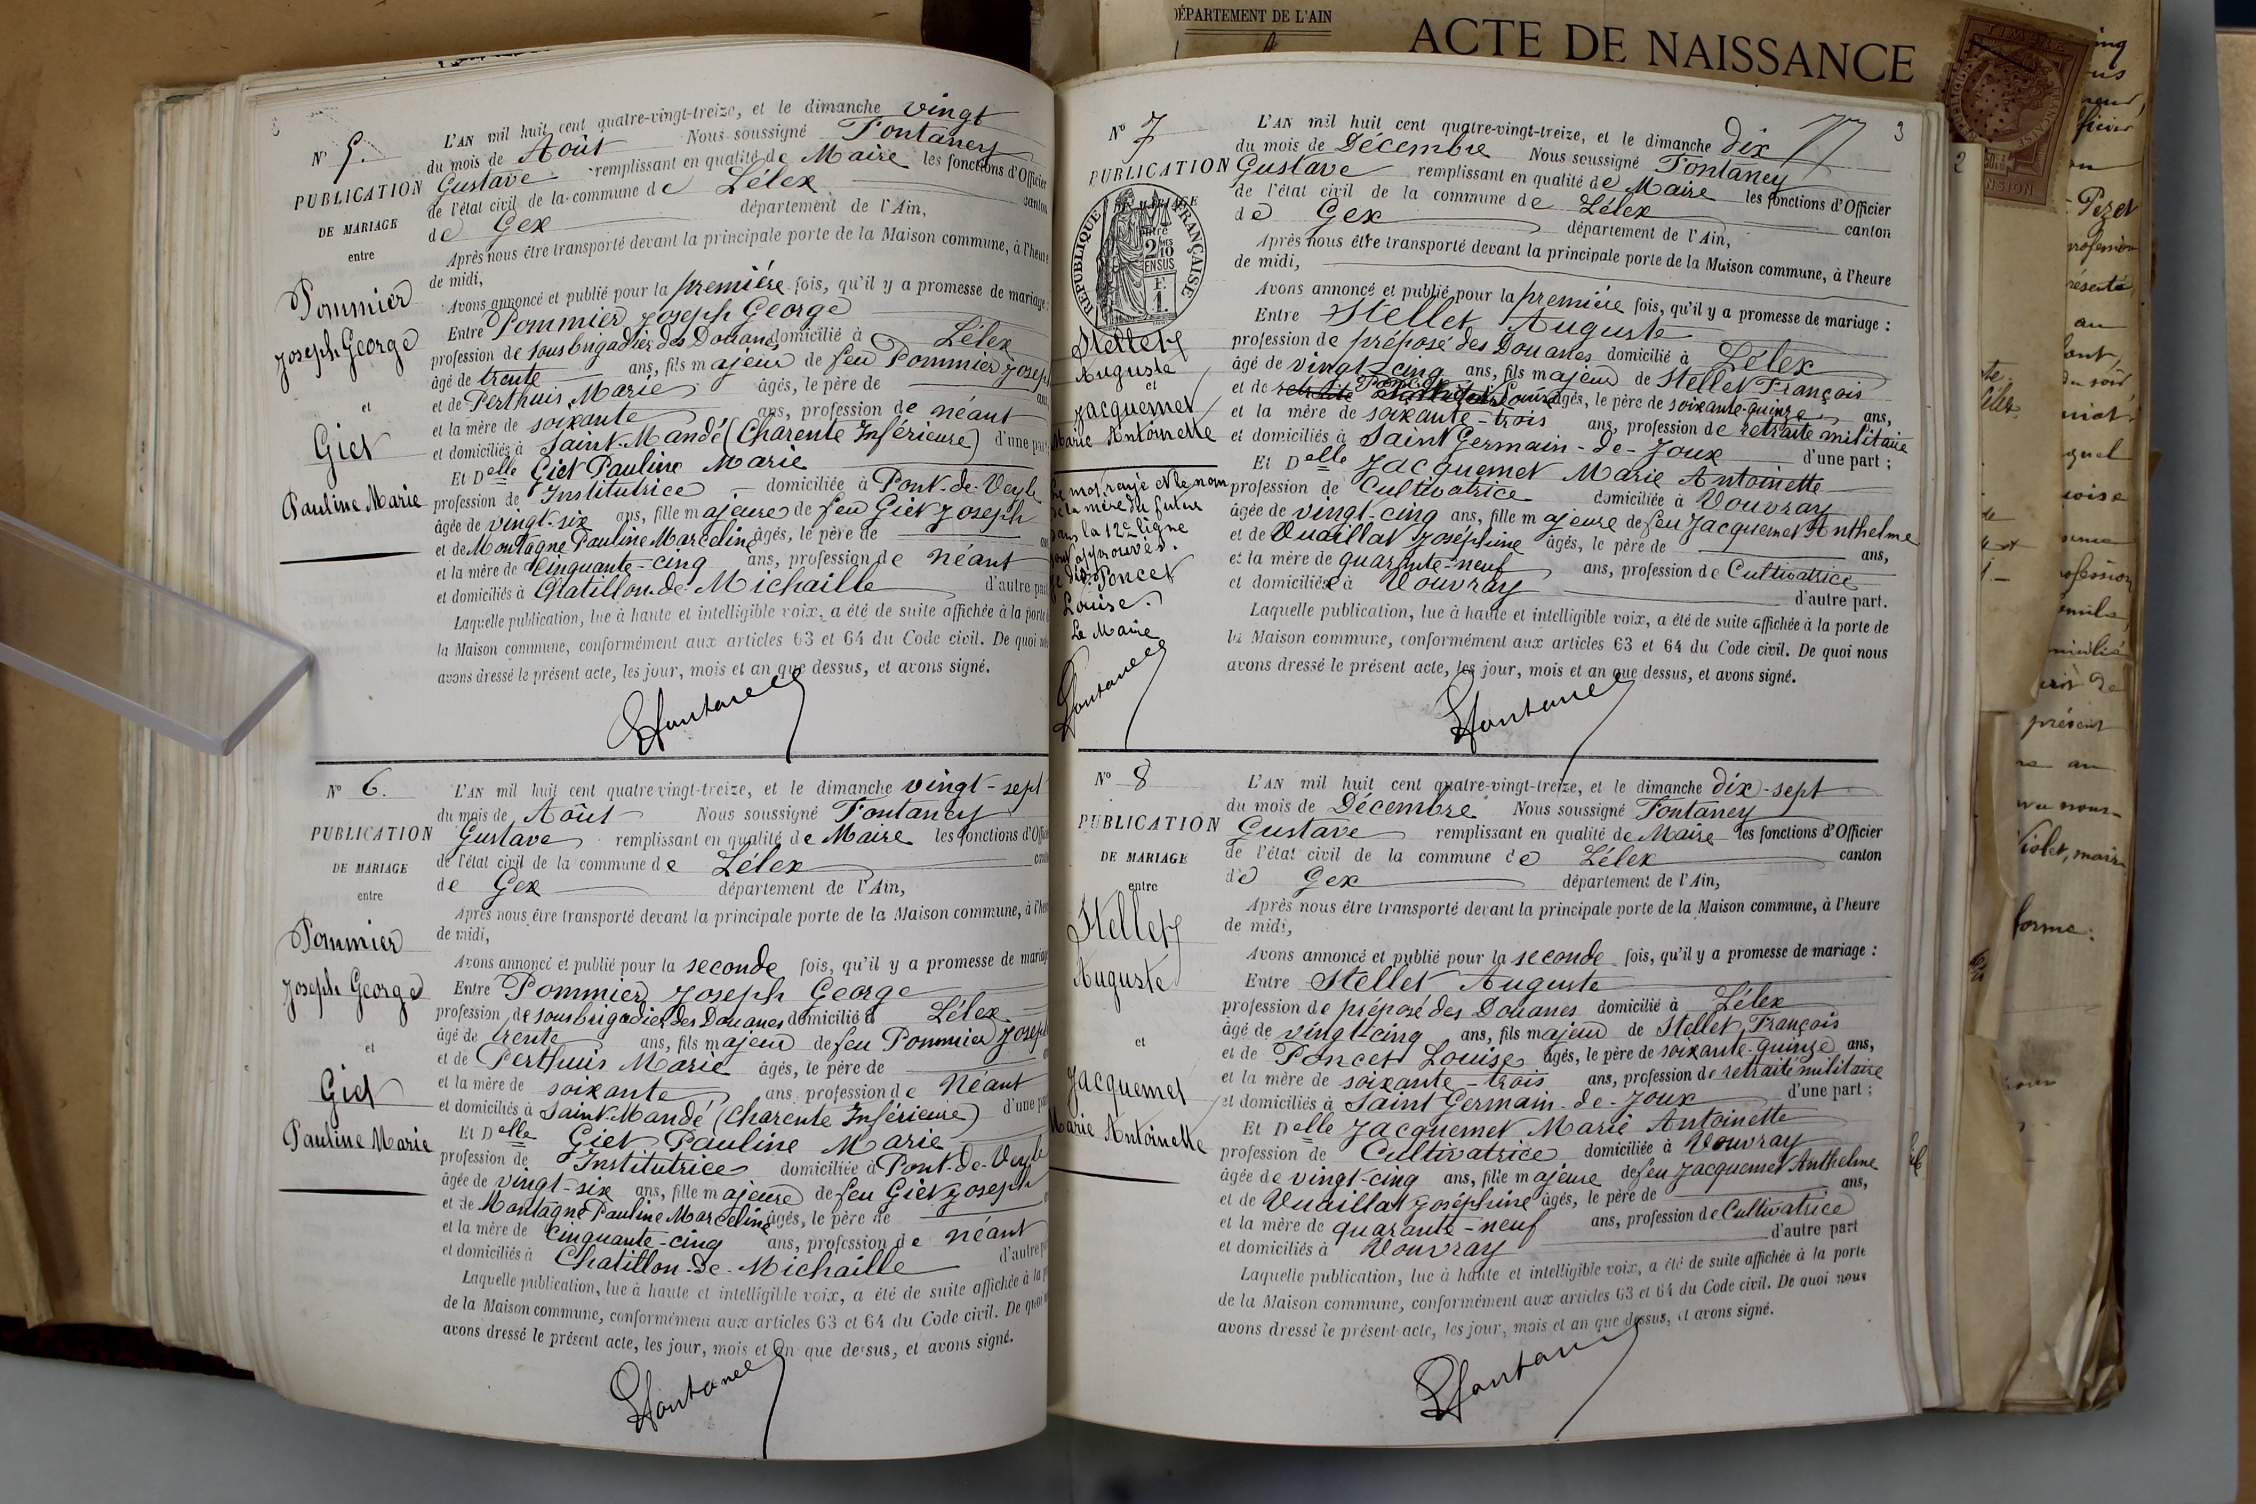 N° 5.
PUBLICATION
DE MARIAGE
entre
Pommier
Joseph George
et
Giet
Pauline Marie
L'AN mil huit cent quatre-vingt-treize, et le dimanche vingt
du mois de Août Nous soussigné Fontaney
Gustave remplissant en qualité de Maire les fonctions d'Officier
de l'état civil de la commune de Lélex canton
de Gex département de l'Ain,
Après nous être transporté devant la principale porte de la Maison commune, à l'heure
de midi,
Avons annoncé et publié pour la première fois, qu'il y a promesse de mariage :
Entre Pommier Joseph George
profession de sous brigadier des Douanes domicilié à Lélex
âgé de trente ans, fils majeur de feu Pommier Joseph
et de Perthuis Marie âgés, le père de ans
et la mère de soixante ans, profession de néant
et domiciliés à Saint-Mandé (Charente Inférieure) d'une part
Et Delle Giet Pauline Marie
profession de Institutrice domiciliée à Pont-de-Veyle
âgée de vingt-six ans, fille majeure de feu Giet Joseph
et de Montagne Pauline Marceline âgés, le père de
et la mère de cinquante-cinq ans, profession de néant
et domiciliés à Chatillon-de-Michaille d'autre part
Laquelle publication, lue à haute et intelligible voix, a été de suite affichée à la porte
la Maison commune, conformément aux articles 63 et 64 du Code civil. De quoi
avons dressé le présent acte, les jour, mois et an que dessus, et avons signé.
Gfontaney
N° 6.
PUBLICATION
DE MARIAGE
entre
Pommier
Joseph George
et
Giet
Pauline Marie
L'AN mil huit cent quatre vingt-treize, et le dimanche vingt-sept
du mois de Août Nous soussigné Fontaney
Gustave remplissant en qualité de Maire les fonctions d'Officier
de l'état civil de la commune de Lélex
de Gex département de l'Ain,
Après nous être transporté devant la principale porte de la Maison commune, à l'heure
de midi,
Avons annoncé et publié pour la seconde fois, qu'il y a promesse de mariage
Entre Pommier Joseph George
profession de sous brigadier des Douanes domicilié à Lélex
âgé de trente ans, fils majeur de feu Pommier Joseph
et de Perthuis Marie âgés, le père de
et la mère de soixante ans, profession de Néant
et domiciliés à Saint-Mandé (Charente Inférieure) d'une part
Et Delle Giet Pauline Marie
profession de Institutrice domiciliée à Pont-de-Veyle
âgée de vingt-six ans, fille majeure de feu Giet Joseph
et de Montagne Pauline Marceline âgés, le père de
et la mère de cinquante-cinq ans, profession de néant
et domiciliés à Chatillon-de-Michaille d'autre
Laquelle publication, lue à haute et intelligible voix, a été de suite affichée à la
de la Maison commune, conformément aux articles 63 et 64 du Code civil. De quoi
avons dressé le présent acte, les jour, mois et an que dessus, et avons signé.
Gfontaney
DÉPARTEMENT DE L'AIN
ACTE DE NAISSANCE
3
N° 7
PUBLICATION
DE MARIAGE
entre
RÉPUBLIQUE FRANÇAISE
2/10 MES
EN SUS
F.
1.
Stellet
Auguste
et
Jacquemet
Marie Antoinette
Le mot rayé et le nom
de la mère du futur
dans la 12e ligne
sont approuvés.
Je dis Poncet
Louise.
Le Maire
Gfontaney
L'AN mil huit cent quatre-vingt-treize, et le dimanche dix
du mois de Décembre Nous soussigné Fontaney
Gustave remplissant en qualité de Maire les fonctions d'Officier
de l'état civil de la commune de Lélex canton
de Gex département de l'Ain,
Après nous être transporté devant la principale porte de la Maison commune, à l'heure
de midi,
Avons annoncé et publié pour la première fois, qu'il y a promesse de mariage :
Entre Stellet Auguste
profession de préposé des Douanes domicilié à Lélex
âgé de vingt-cinq ans, fils majeur de Stellet François
et de Poncet Louise âgés, le père de soixante-quinze ans,
et la mère de soixante-trois ans, profession de retraité militaire
et domiciliés à Saint Germain-de-Joux d'une part ;
Et Delle Jacquemet Marie Antoinette
profession de Cultivatrice domiciliée à Vouvray
âgée de vingt-cinq ans, fille majeure de feu Jacquemet Anthelme
et de Vuaillat Joséphine âgés, le père de ans,
et la mère de quarante-neuf ans, profession de Cultivatrice
et domiciliés à Vouvray d'autre part.
Laquelle publication, lue à haute et intelligible voix, a été de suite affichée à la porte de
la Maison commune, conformément aux articles 63 et 64 du Code civil. De quoi nous
avons dressé le présent acte, les jour, mois et an que dessus, et avons signé.
Gfontaney
N° 8
PUBLICATION
DE MARIAGE
entre
Stellet
Auguste
et
Jacquemet
Marie Antoinette
L'AN mil huit cent quatre-vingt-treize, et le dimanche dix-sept
du mois de Décembre Nous soussigné Fontaney
Gustave remplissant en qualité de Maire les fonctions d'Officier
de l'état civil de la commune de Lélex canton
de Gex département de l'Ain,
Après nous être transporté devant la principale porte de la Maison commune, à l'heure
de midi,
Avons annoncé et publié pour la seconde fois, qu'il y a promesse de mariage :
Entre Stellet Auguste
profession de préposé des Douanes domicilié à Lélex
âgé de vingt-cinq ans, fils majeur de Stellet François
et de Poncet Louise âgés, le père de soixante-quinze ans,
et la mère de soixante-trois ans, profession de retraité militaire
et domiciliés à Saint Germain-de-Joux d'une part ;
Et Delle Jacquemet Marie Antoinette
profession de Cultivatrice domiciliée à Vouvray
âgée de vingt-cinq ans, fille majeure de feu Jacquemet Anthelme
et de Vuaillat Joséphine âgés, le père de ans,
et la mère de quarante-neuf ans, profession de Cultivatrice
et domiciliés à Vouvray d'autre part
Laquelle publication, lue à haute et intelligible voix, a été de suite affichée à la porte
de la Maison commune, conformément aux articles 63 et 64 du Code civil. De quoi nous
avons dressé le présent acte, les jour, mois et an que dessus, et avons signé.
Gfontaney
2
TIMBRE
Pezet
profession
au
quel
présent
au
Violet, maire
forme: